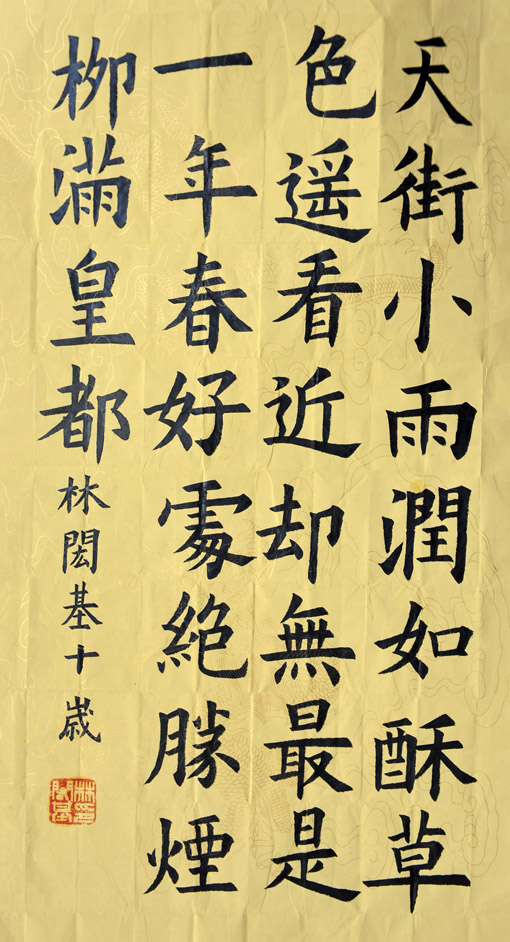 天街小雨潤如酥草
色遥看近却無最是
一年春好處絕勝煙
柳滿皇都
林閎基十歲